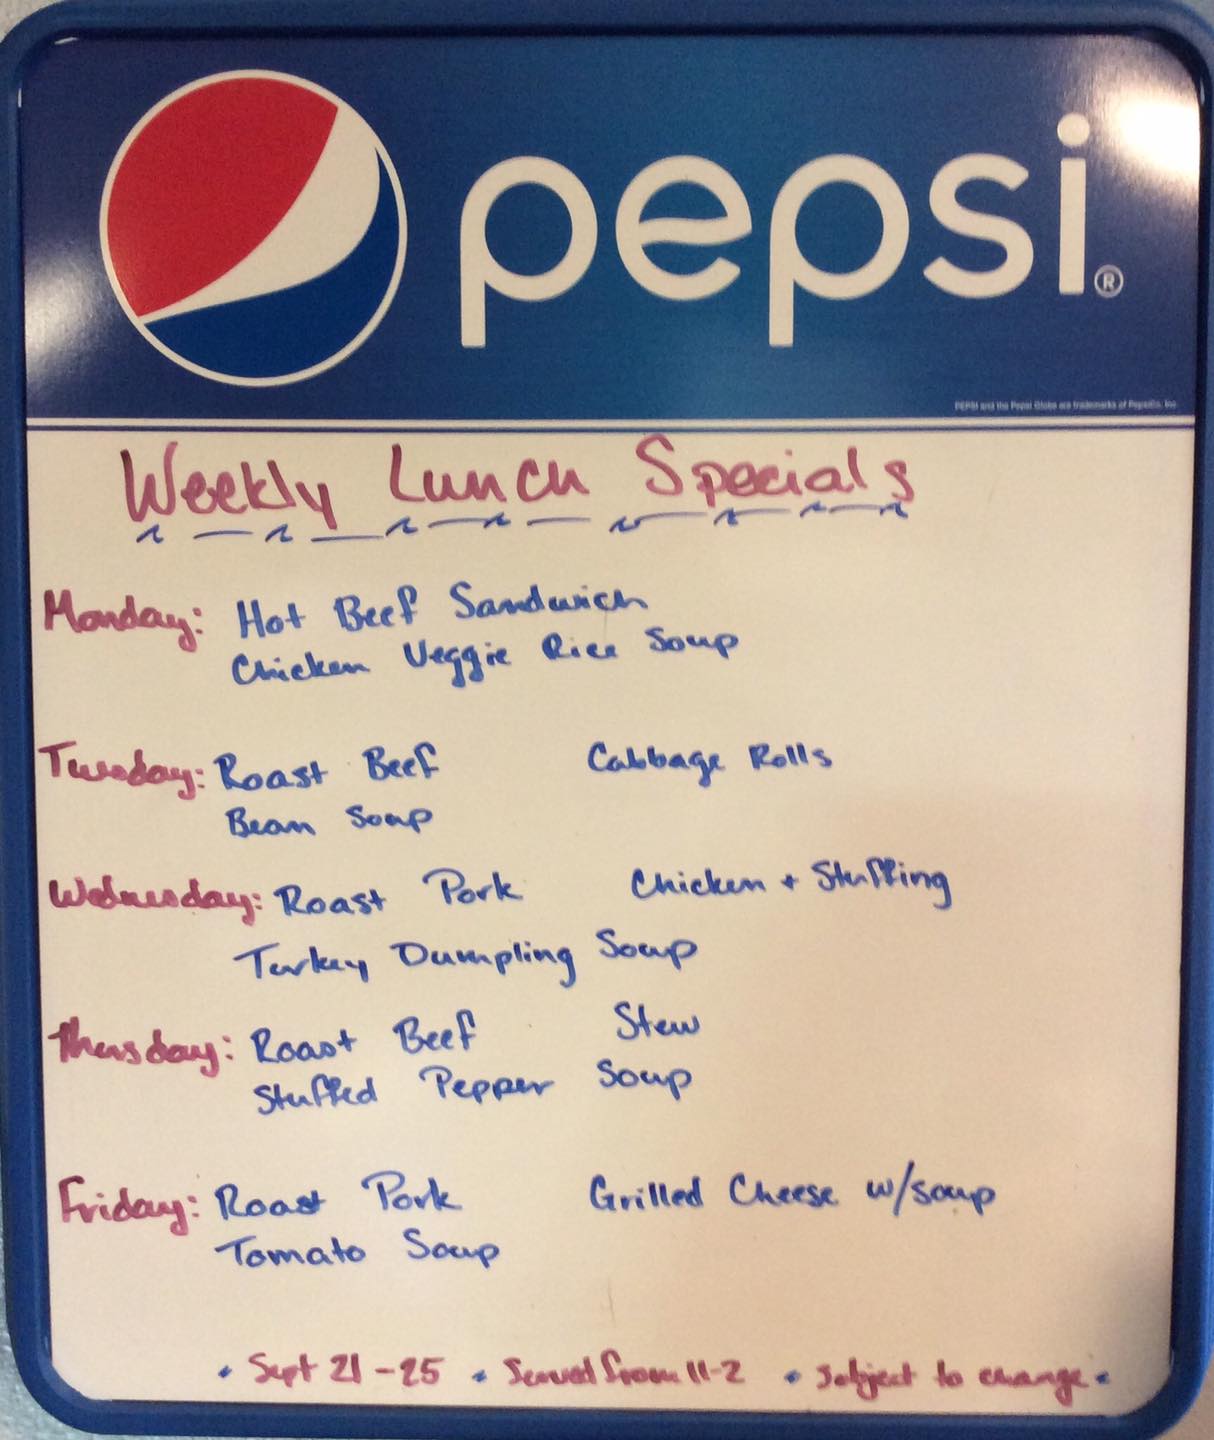 pepsi®
PEPSI and the Pepsi Globe are trademarks of PepsiCo, Inc.
Weekly Lunch Specials
Monday: Hot Beef Sandwich
Chicken Veggie Rice Soup
Tuesday: Roast Beef Cabbage Rolls
Bean Soup
Wednesday: Roast Pork Chicken + Stuffing
Turkey Dumpling Soup
Thursday: Roast Beef Stew
Stuffed Pepper Soup
Friday: Roast Pork Grilled Cheese w/soup
Tomato Soup
• Sept 21-25 • Served from 11-2 • Subject to change •